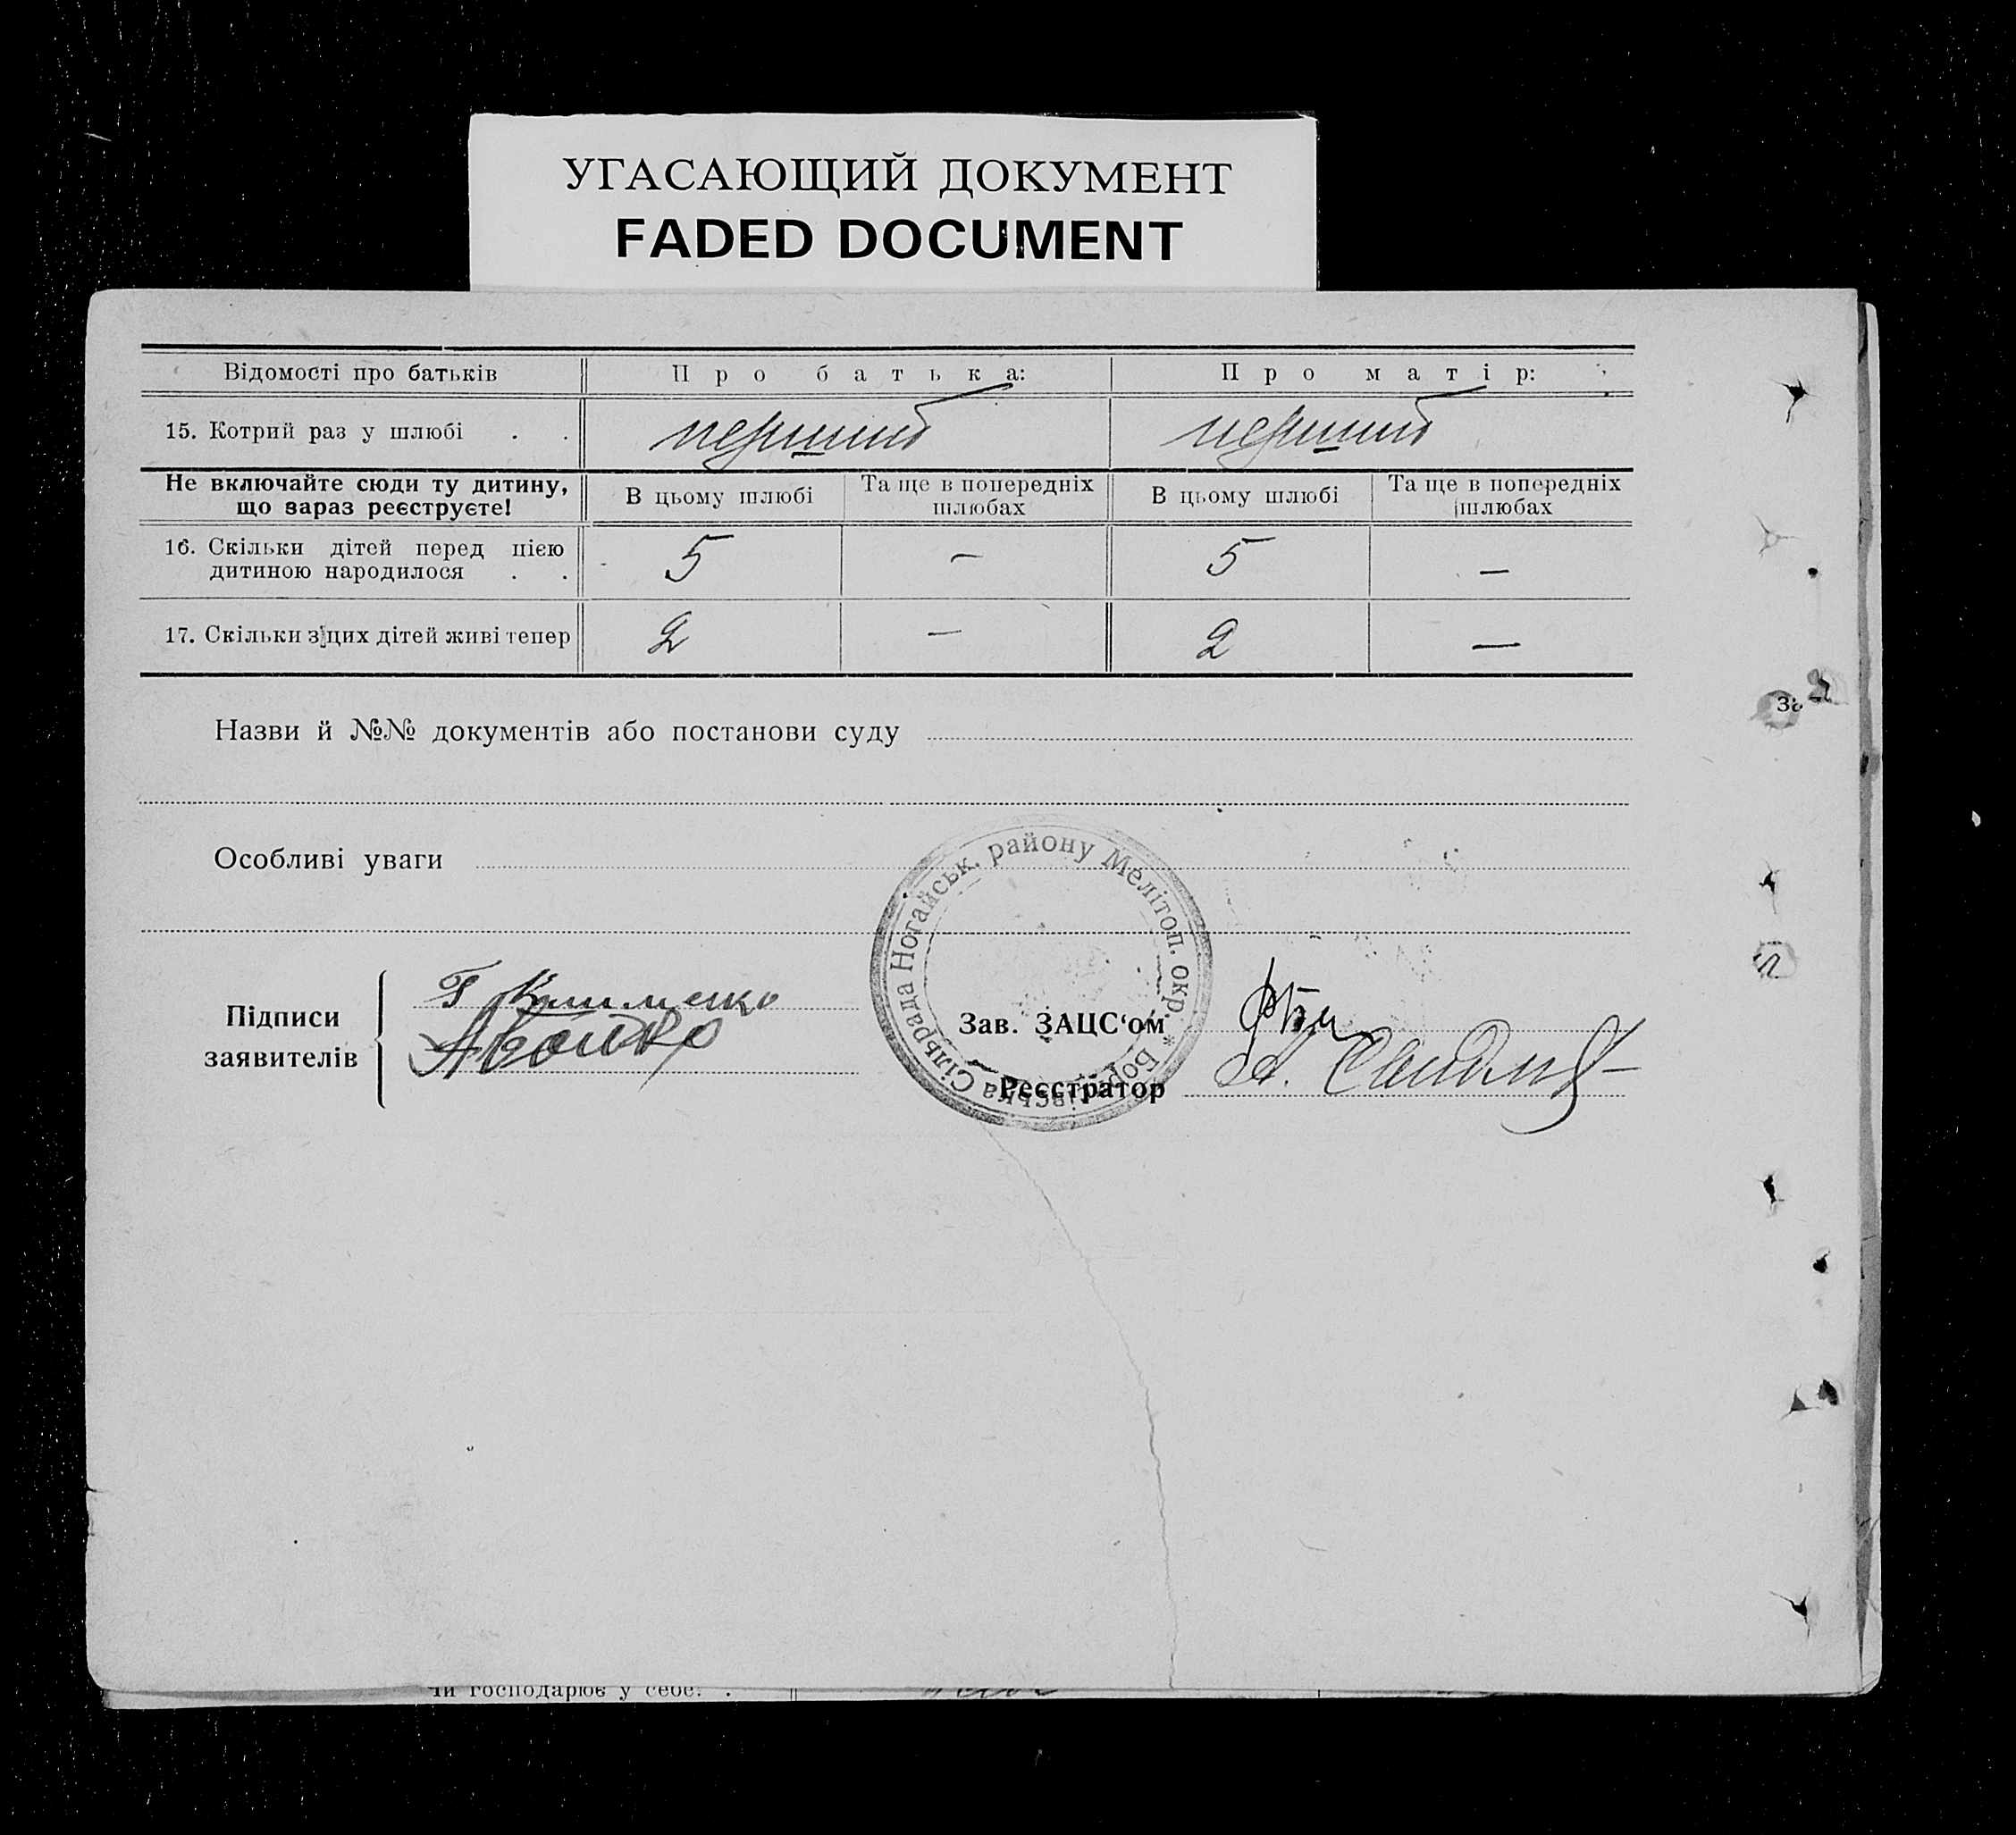 УГАСАЮЩИЙ ДОКУМЕНТ
FADED DOCUMENT
Відомості про батьків Про батька: Про матір:
15. Котрий раз у шлюбі . . перший перший
Не включайте сюди ту дитину, що зараз реєструєте! В цьому шлюбі Та ще в попередніх шлюбах В цьому шлюбі Та ще в попередніх шлюбах
16. Скільки дітей перед цією
дитиною народилося . . 5 — 5 —
17. Скільки з цих дітей живі тепер 2 — 2 —
Назви й №№ документів або постанови суду
Особливі уваги
Сільрада Ногайськ. району Мелітоп. окр. *
Підписи
заявителів
Г Клименко
А Бойко
Зав. ЗАЦС‘ом
Реєстратор
А.
За
чи господарює у себе. .